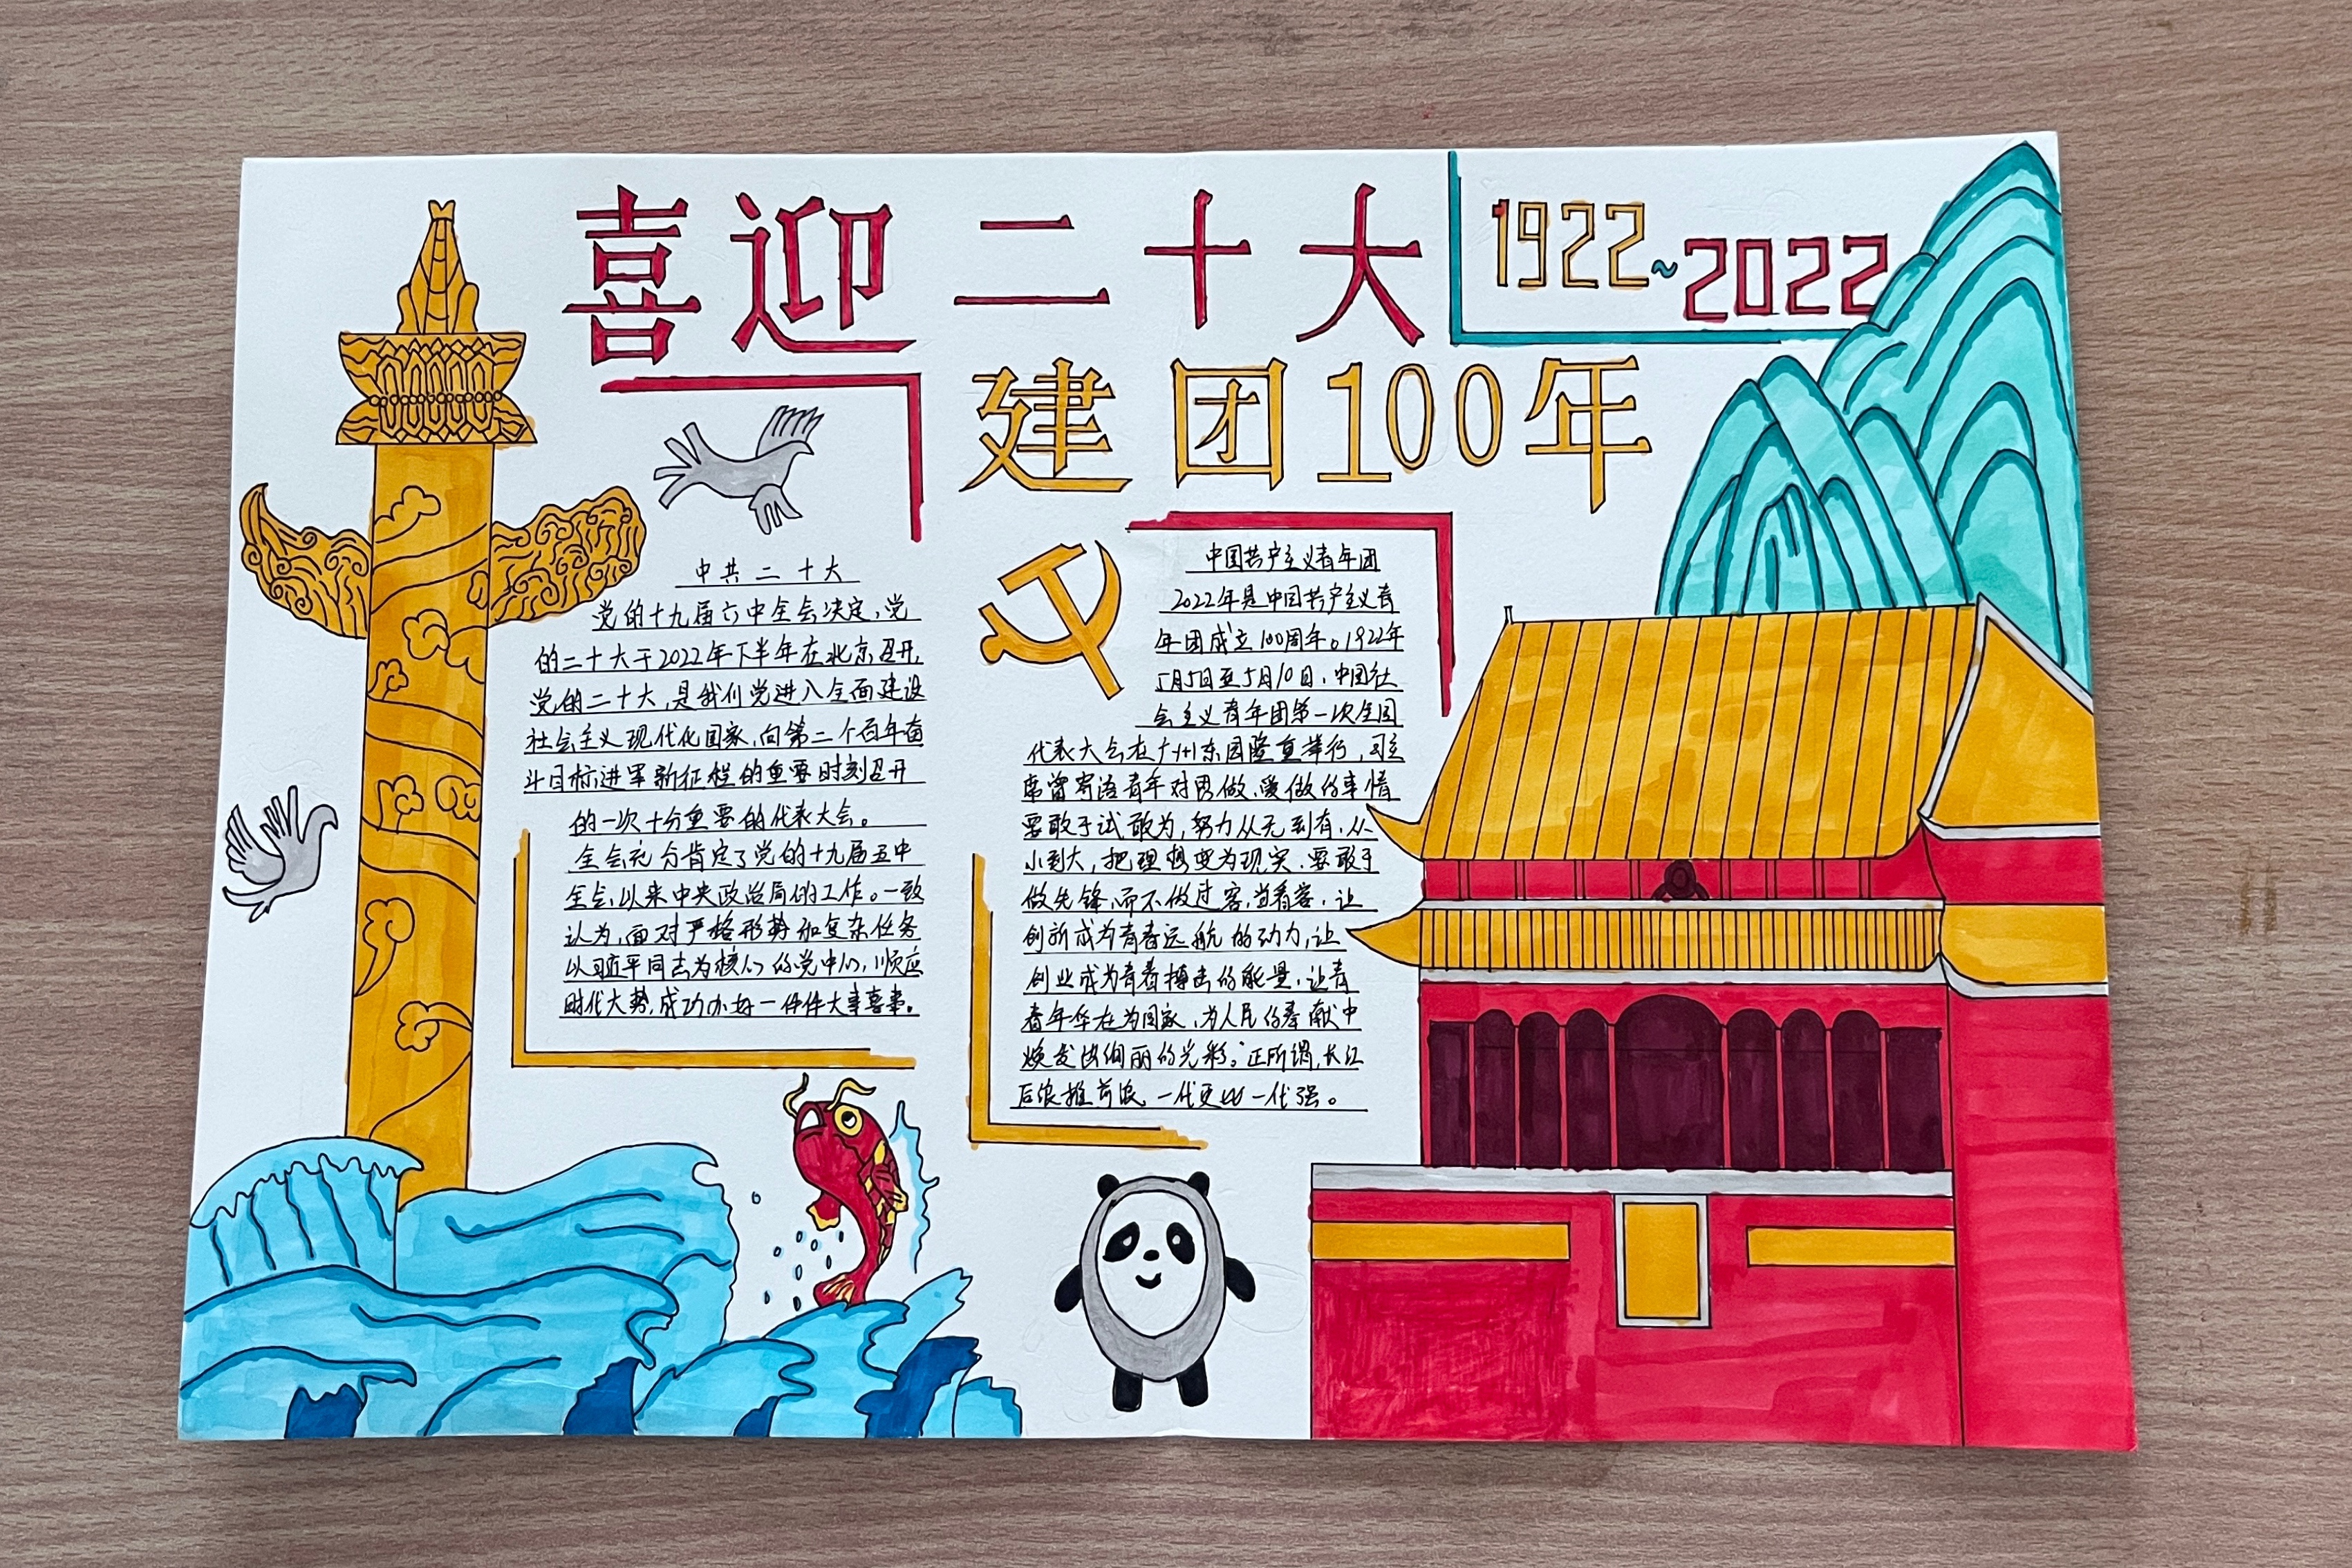 喜迎二十大
1922~2022
建团100年
中共二十大
党的十九届六中全会决定,党
的二十大于2022年下半年在北京召开,
党的二十大,是我们党进入全面建设
社会主义现代化国家,向第二个百年奋
斗目标进军新征程的重要时刻召开
的一次十分重要的代表大会。
全会充分肯定了党的十九届五中
全会以来中央政治局的工作。一致
认为,面对严格形势和复杂任务
以习近平同志为核心的党中,顺应
时代大势,成功办好一件件大事喜事。
中国共产主义青年团
2022年是中国共产主义青
年团成立100周年。1922年
5月5日至5月10日,中国社
会主义青年团第一次全国
代表大会在广州东园隆重举行,习主
席曾寄语青年对男做、爱做的事情
要敢于试敢为,努力从无到有,从
小到大,把理想变为现实.要敢于
做先锋,而不做过客,当看客,让
创新成为青春远航的动力,让
创业成为青春搏击的能量,让青
春年华在为国家,为人民的奉献中
焕发出绚丽的光彩。"正所谓,长江
后浪推前浪,一代更比一代强。